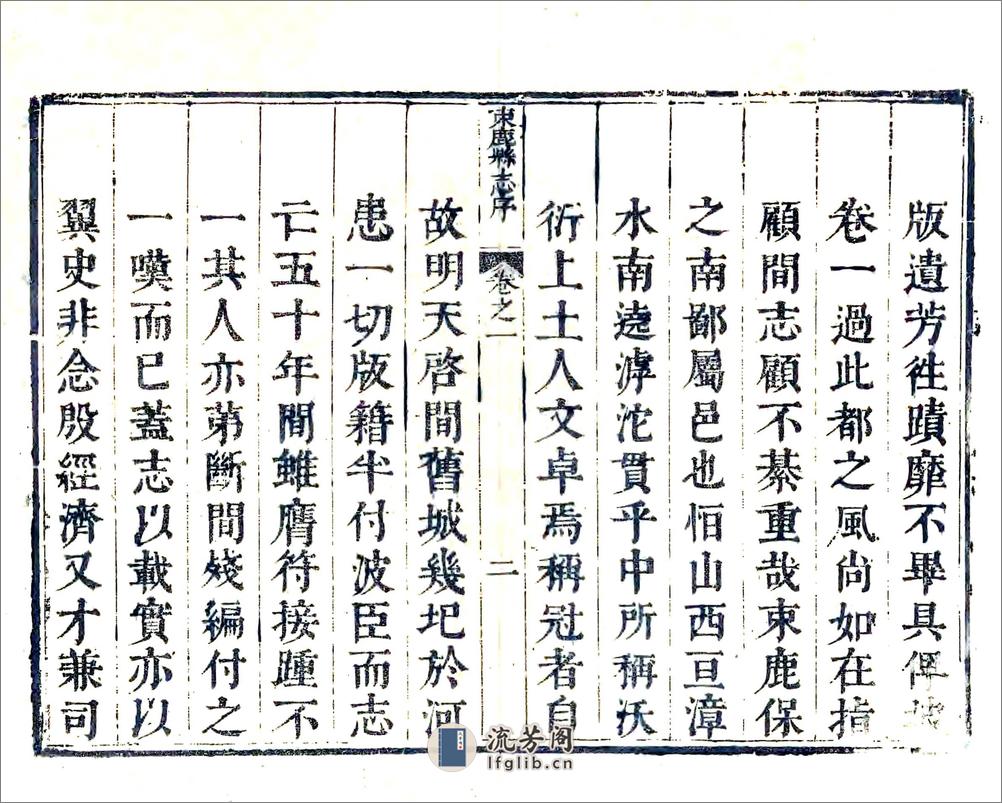 版遺芳徃蹟靡不畢具俾
卷一過此都之風尚如在指
顧間志顧不綦重哉束鹿保
之南鄙屬邑也恒山西亘漳
水南遶滹沱貫乎中所稱沃
衍上土人文卓焉稱冠者自
束鹿縣志序 卷之一 二
故明天啓間舊城幾圮於河
患一切版籍半付波臣而志
亡五十年間雖膺符接踵不
一其人亦苐斷間殘編付之
一嘆而已蓋志以載實亦以
翼史非念殷經濟又才兼司
流芳阁
lfglib.cn